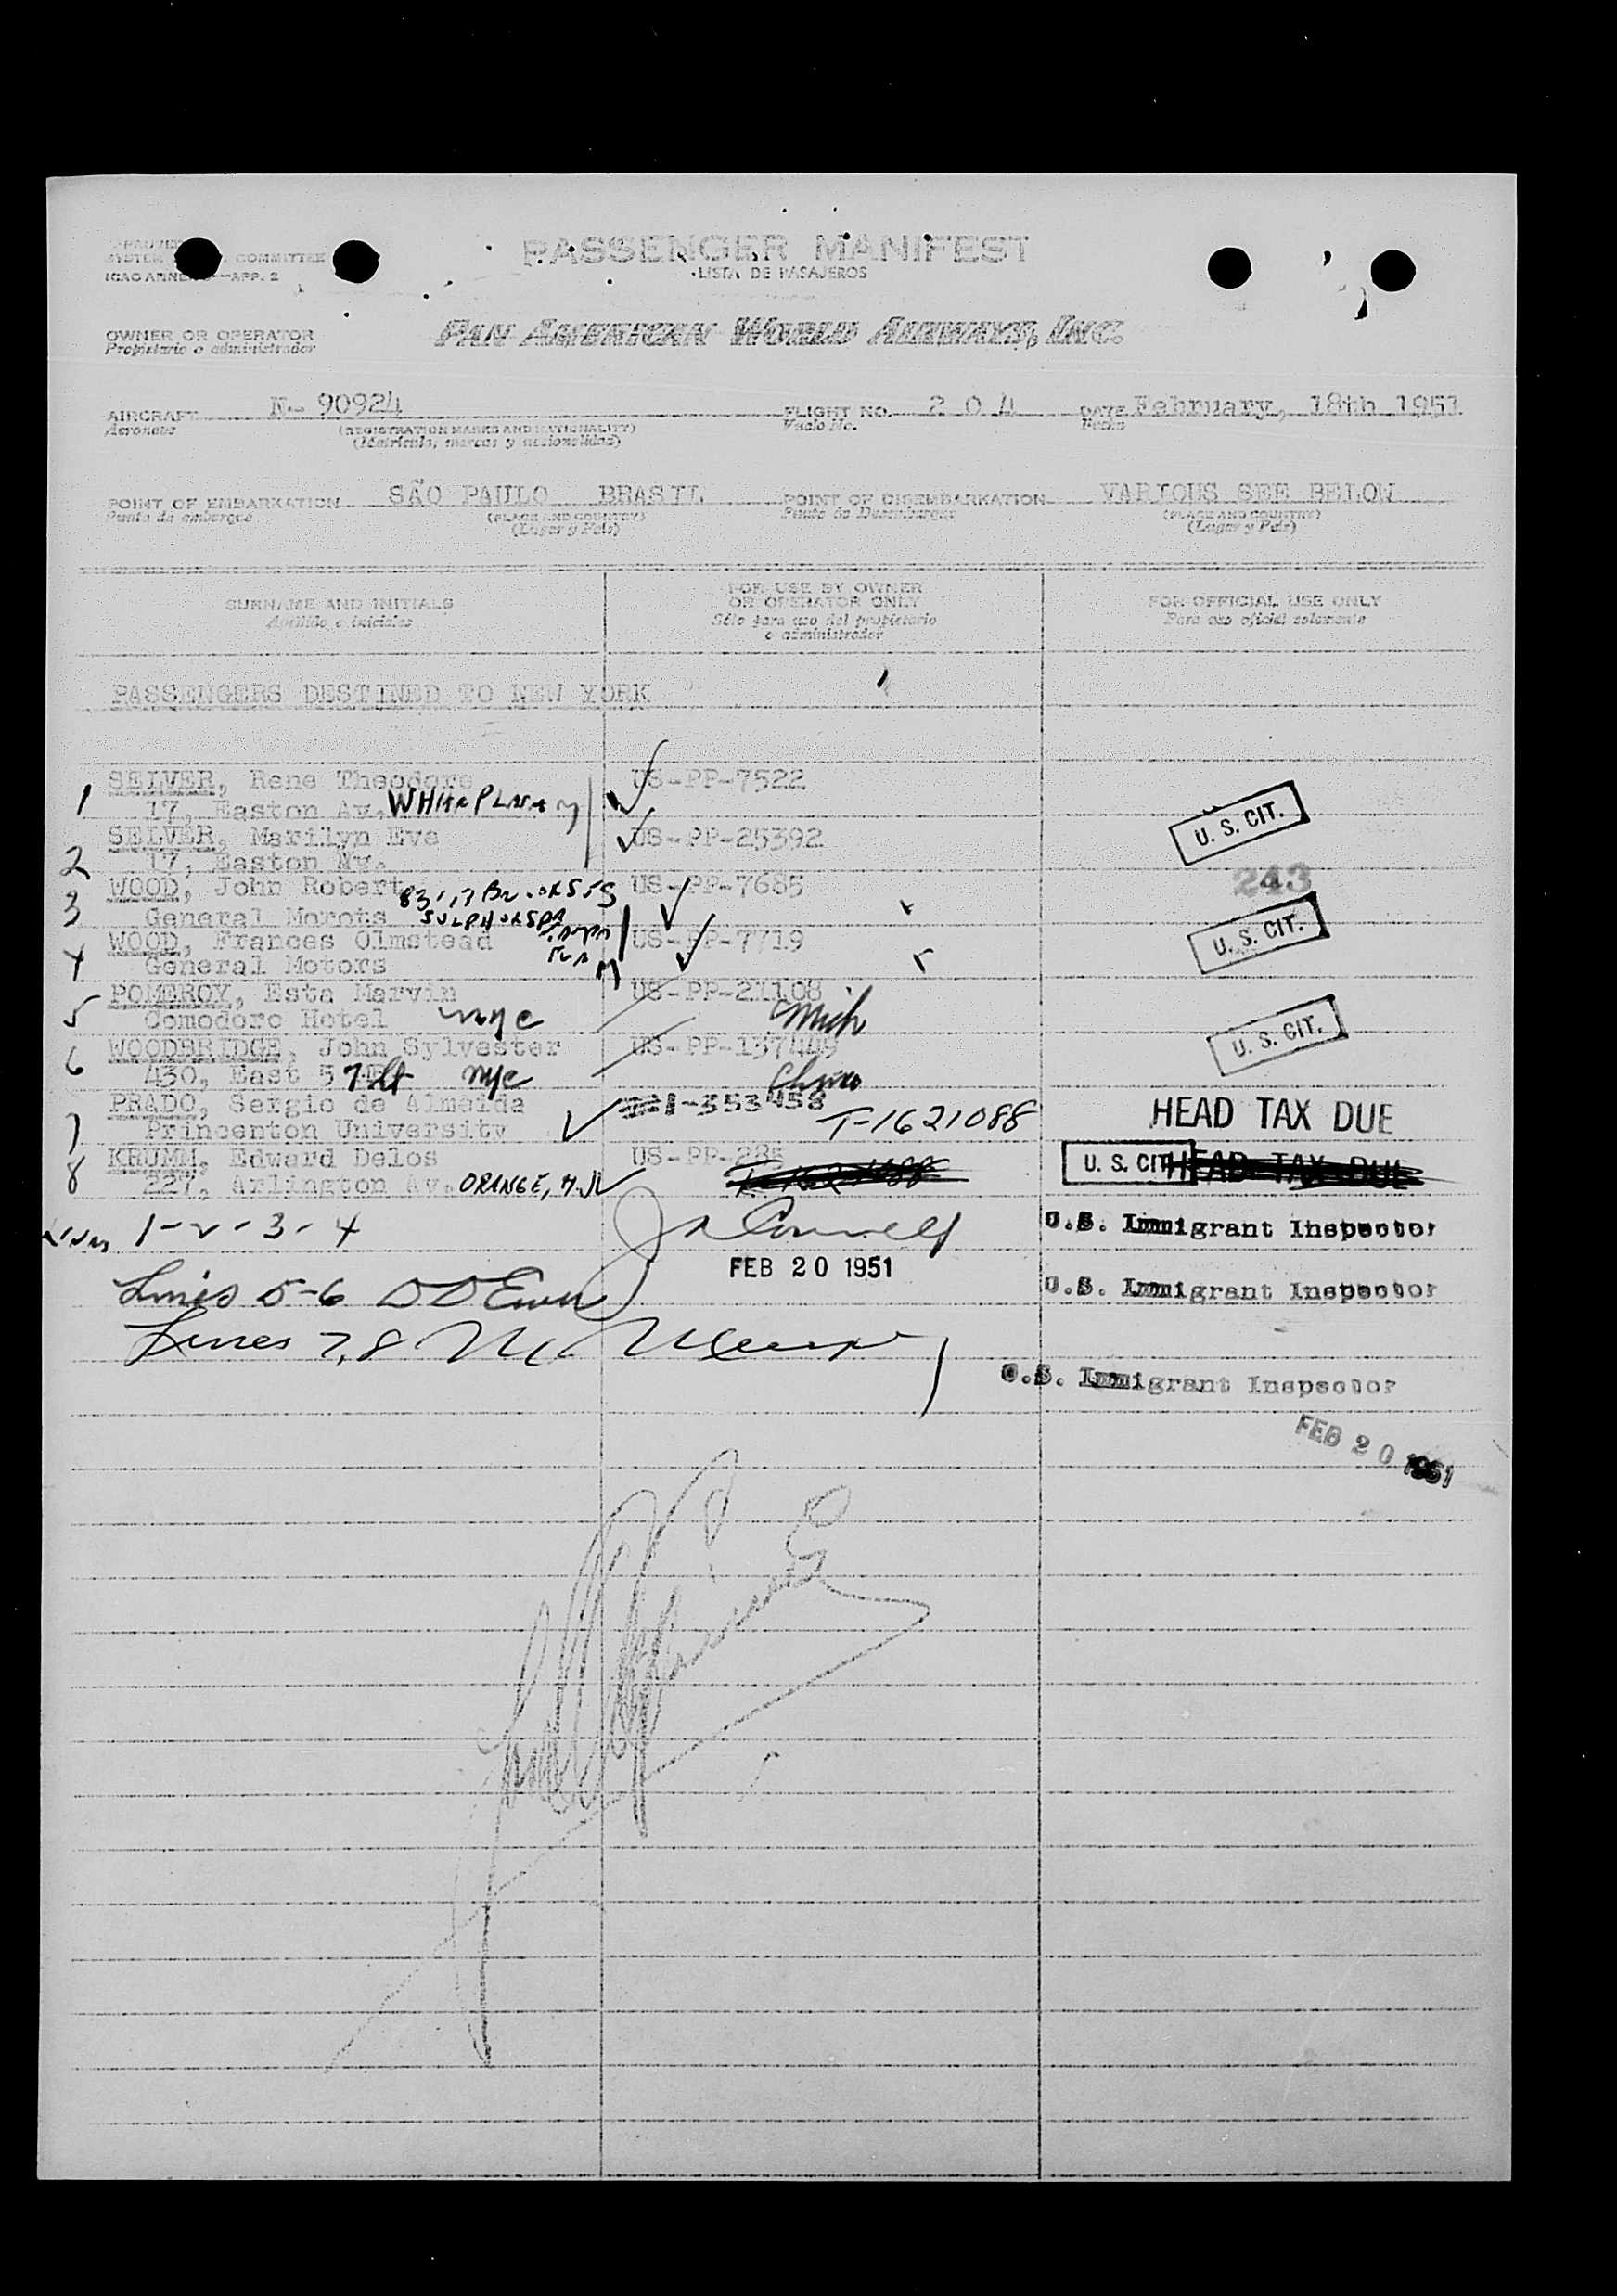 SYSTEM COMMITTEE
ICAO ANNE —APP. 2
PASSENGER MANIFEST
LISTA DE PASAJEROS
OWNER OR OPERATOR
Propietario o administrador
PAN AMERICAN WORLD AIRWAYS, INC.
AIRCRAFT N.- 90924 FLIGHT NO. 2 0 4 DATE February, 18th 1951
Aeronave (REGISTRATION MARKS AND NATIONALITY) Vuelo No. Fecha
(Matrícula, marcas y nacionalidad)
POINT OF EMBARKATION SÃO PAULO BRASIL POINT OF DISEMBARKATION VARIOUS SEE BELOW
Punto de embarque (PLACE AND COUNTRY) Punto de Desembarque (PLACE AND COUNTRY)
(Lugar y País) (Lugar y País)
SURNAME AND INITIALS
Apellido e iniciales
FOR USE BY OWNER
OR OPERATOR ONLY
Sólo para uso del propietario
o administrador
FOR OFFICIAL USE ONLY
Para uso oficial solamente
PASSENGERS DESTINED TO NEW YORK
SELVER, Rene Theodore US-PP-7522
1 17, Easton Av. U. S. CIT.
SELVER, Marilyn Eve US-PP-25392
2 17, Easton Av.
WOOD, John Robert US-PP-7685 243
3 General Morots
WOOD, Frances Olmstead US-PP-7719 U. S. CIT.
4 General Motors
POMEROY, Esta Marvin US-PP-21108
5 Comodoro Hotel nyc Mich U. S. CIT.
WOODBRIDGE, John Sylvester US-PP-137449
6 430, East 57 St nyc
PRADO, Sergio de Almeida 1-353458
7 Princenton University T-1621088 HEAD TAX DUE
KRUMM, Edward Delos US-PP-285
8 227, Arlington Av. ORANGE, N.J. U. S. CIT. HEAD TAX DUE
1-2-3-4 U.S. Immigrant Inspector
FEB 20 1951
Lines 5-6 U.S. Immigrant Inspector
Lines 7,8
U.S. Immigrant Inspector
FEB 20 1951